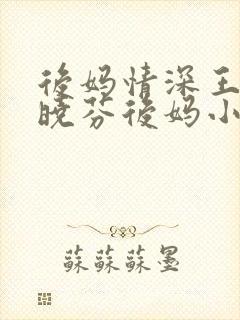 後妈情深王
晓芬後妈小
蘇蘇蘇墨